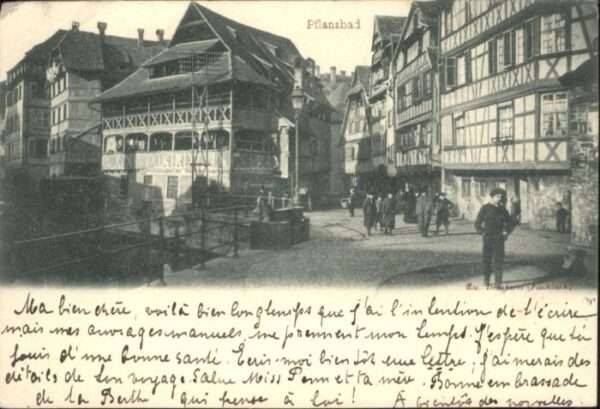 Pflanzbad
Ma bien chère, voilà bien longtemps que j'ai l'intention de t'écrire
mais mes ouvrages manuels me prennent mon temps. J'espère que tu
jouis d'une bonne santé. Ecris-moi bientôt une lettre; j'aimerais des
détails de ton voyage. Salue Miss Penn et ta mère. Bonne embrassade
de la Berthe qui pense à toi! A bientôt des nouvelles.